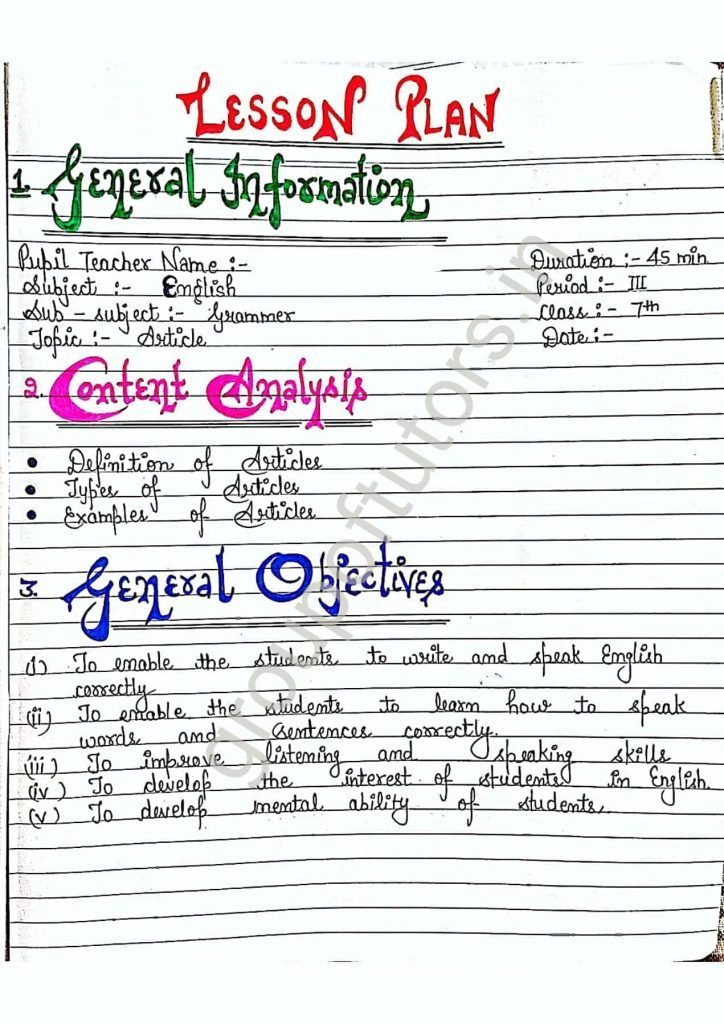 LESSON PLAN
1. General Information
Pupil Teacher Name :- Duration :- 45 min
Subject :- English Period :- III
Sub - subject :- Grammer class :- 7th
Topic :- Article Date :-
2. Content Analysis
• Definition of Articles
• Types of Articles
• Examples of Articles
3. General Objectives
(i) To enable the students to write and speak English
correctly
(ii) To enable the students to learn how to speak
words and sentences correctly.
(iii) To improve listening and speaking skills
(iv) To develop the interest of students in English.
(v) To develop mental ability of students.
groupoftutors.in